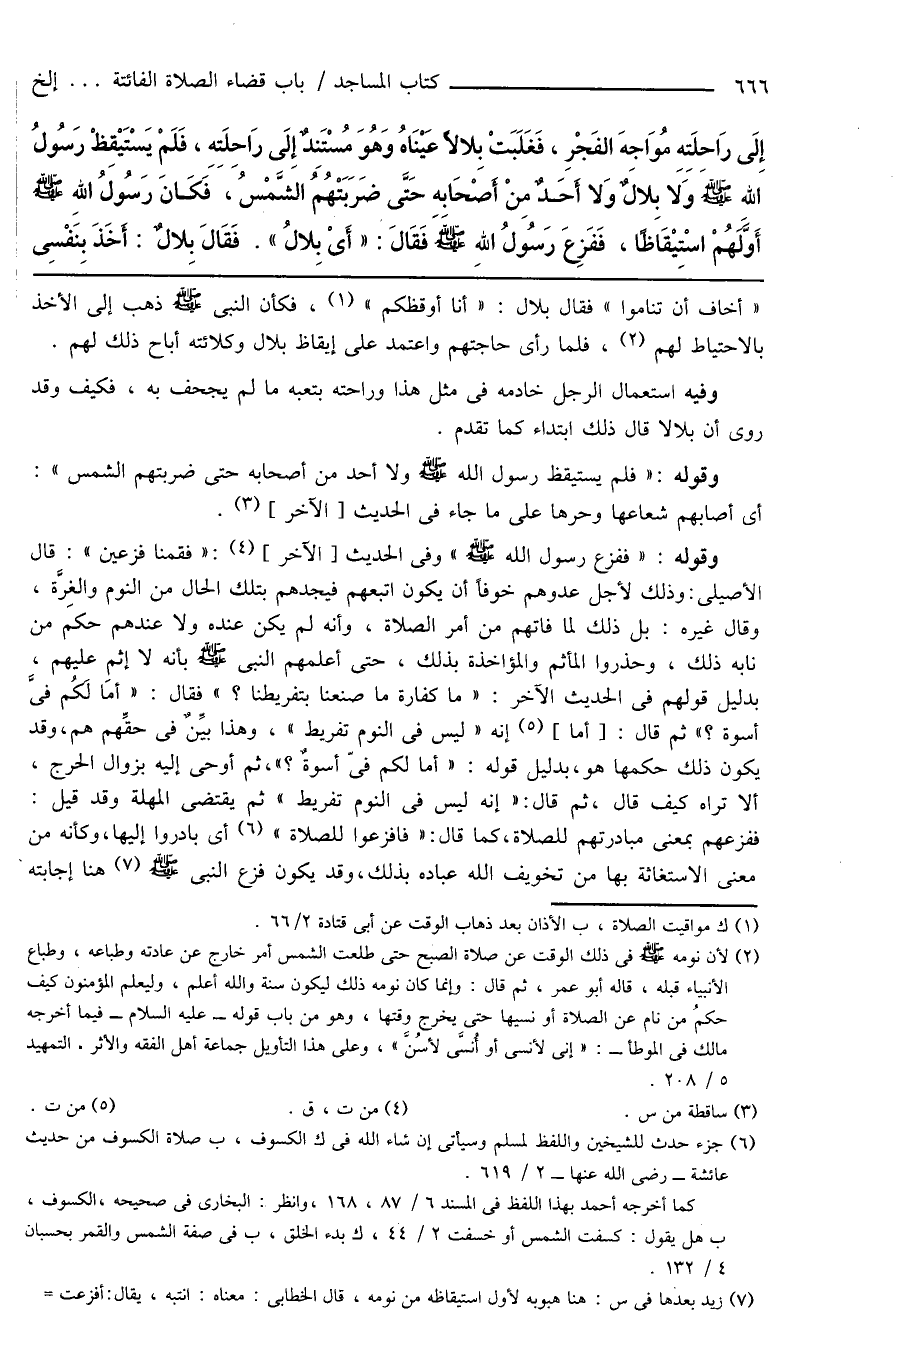 ٦٦٦ ــــــــــ كتاب المساجد / باب قضاء الصلاة الفائتة ... إلخ
إِلَى رَاحِلَتِهِ مُوَاجِهَ الفَجْرِ ، فَغَلَبَتْ بِلالاً عَيْنَاهُ وَهُوَ مُسْتَنِدٌ إِلَى رَاحِلَتِهِ ، فَلَمْ يَسْتَيْقِظْ رَسُولُ
اللهِ ﷺ وَلا بِلالٌ وَلا أَحَدٌ مِنْ أَصْحَابِهِ حَتَّى ضَرَبَتْهُمُ الشَّمْسُ ، فَكَانَ رَسُولُ اللهِ ﷺ
أَوَّلَهُمْ اسْتِيْقَاظًا ، فَفَزِعَ رَسُولُ اللهِ ﷺ فَقَالَ : « أَىْ بِلالُ » . فَقَالَ بِلالٌ : أَخَذَ بِنَفْسِى
« أخاف أن تناموا » فقال بلال : « أنا أوقظكم » (١) ، فكأن النبى ﷺ ذهب إلى الأخذ
بالاحتياط لهم (٢) ، فلما رأى حاجتهم واعتمد على إيقاظ بلال وكلائته أباح ذلك لهم .
وفيه استعمال الرجل خادمه فى مثل هذا وراحته بتعبه ما لم يجحف به ، فكيف وقد
روى أن بلالا قال ذلك ابتداء كما تقدم .
وقوله :« فلم يستيقظ رسول الله ﷺ ولا أحد من أصحابه حتى ضربتهم الشمس » :
أى أصابهم شعاعها وحرها على ما جاء فى الحديث [ الآخر ] (٣) .
وقوله : « ففزع رسول الله ﷺ » وفى الحديث [ الآخر ] (٤) :« فقمنا فزعين » : قال
الأصيلى:وذلك لأجل عدوهم خوفاً أن يكون اتبعهم فيجدهم بتلك الحال من النوم والغرَّة ،
وقال غيره : بل ذلك لما فاتهم من أمر الصلاة ، وأنه لم يكن عنده ولا عندهم حكم من
نابه ذلك ، وحذروا المأثم والمؤاخذة بذلك ، حتى أعلمهم النبى ﷺ بأنه لا إثم عليهم ،
بدليل قولهم فى الحديث الآخر : « ما كفارة ما صنعنا بتفريطنا ؟ » فقال : « أمَا لَكُم فىَّ
أسوة ؟» ثم قال : [ أما ] (٥) إنه « ليس فى النوم تفريط » ، وهذا بيِّنٌ فى حقِّهم هم،وقد
يكون ذلك حكمها هو،بدليل قوله : « أما لكم فىّ أسوةٌ ؟»،ثم أوحى إليه بزوال الحرج ،
ألا تراه كيف قال ،ثم قال:« إنه ليس فى النوم تفريط » ثم يقتضى المهلة وقد قيل :
ففزعهم بمعنى مبادرتهم للصلاة،كما قال:« فافزعوا للصلاة » (٦) أى بادروا إليها،وكأنه من
معنى الاستغاثة بها من تخويف الله عباده بذلك،وقد يكون فزع النبى ﷺ (٧) هنا إجابته
(١) ك مواقيت الصلاة ، ب الأذان بعد ذهاب الوقت عن أبى قتادة ٢/ ٦٦ .
(٢) لأن نومه ﷺ فى ذلك الوقت عن صلاة الصبح حتى طلعت الشمس أمر خارج عن عادته وطباعه ، وطباع
الأنبياء قبله ، قاله أبو عمر ، ثم قال : وإنما كان نومه ذلك ليكون سنة والله أعلم ، وليعلم المؤمنون كيف
حكمُ من نام عن الصلاة أو نسيها حتى يخرج وقتها ، وهو من باب قوله ــ عليه السلام ــ فيما أخرجه
مالك فى الموطأ ــ : « إنى لأنسى أو أُنسَّى لأسُنَّ » ، وعلى هذا التأويل جماعة أهل الفقه والأثر . التمهيد
٥ / ٢٠٨ .
(٣) ساقطة من س . (٤) من ت ، ق . (٥) من ت .
(٦) جزء حدث للشيخين واللفظ لمسلم وسيأتى إن شاء الله فى ك الكسوف ، ب صلاة الكسوف من حديث
عائشة ــ رضى الله عنها ــ ٢ / ٦١٩ .
كما أخرجه أحمد بهذا اللفظ فى المسند ٦ / ٨٧ ، ١٦٨ ،وانظر : البخارى فى صحيحه ،الكسوف ،
ب هل يقول : كسفت الشمس أو خسفت ٢ / ٤٤ ، ك بدء الخلق ، ب فى صفة الشمس والقمر بحسبان
٤ / ١٣٢ .
(٧) زيد بعدها فى س : هنا هبوبه لأول استيقاظه من نومه ، قال الخطابى : معناه : انتبه ، يقال:أفزعت =